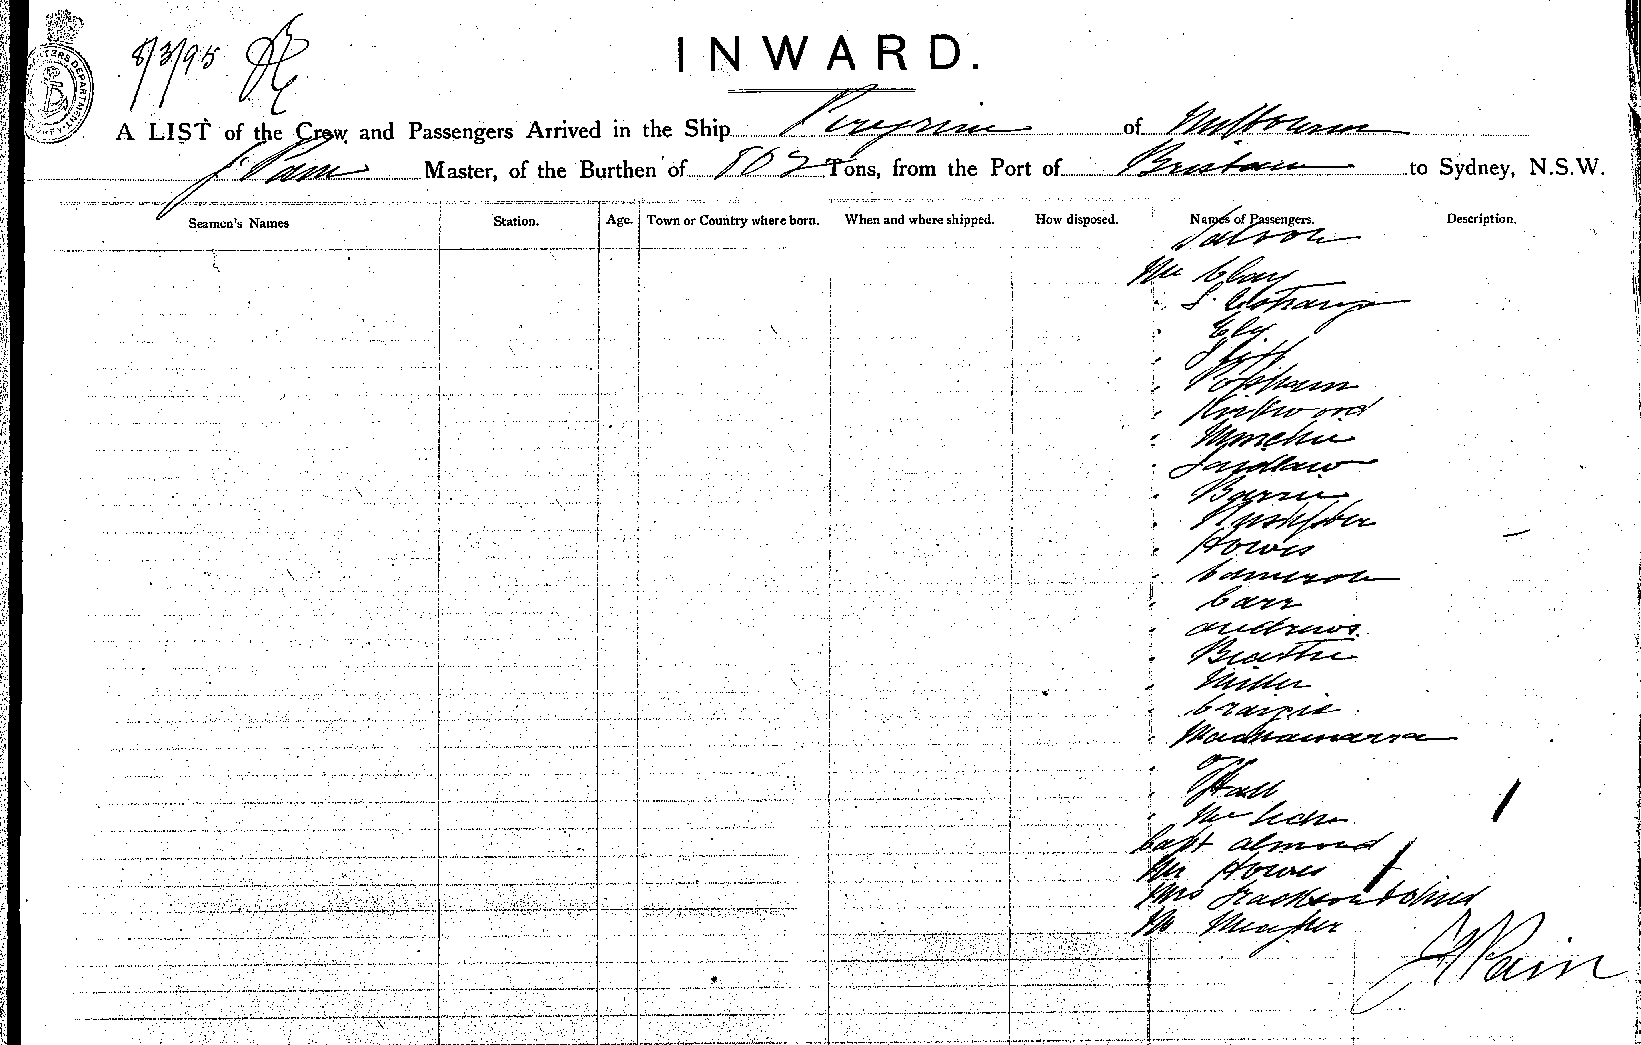 8/3/95
INWARD.
A LIST of the Crew and Passengers Arrived in the Ship Peregrine of Melbourne
J. Pain Master, of the Burthen of 802 Tons, from the Port of Brisbane to Sydney, N.S.W.
Seamen's Names Station. Age. Town or Country where born. When and where shipped. How disposed. Names of Passengers. Description.
Mr Clay
" Ely
" Popham
" Kirkwood
" Minchin
" Laidlaw
" Barrie
" Howes
" Cameron
" Carr
" Andrews
" Beattie
" Miller
" Craigie
" Macnamarra
" Hall
Capt Almond
Mr Howes
Mrs Jackson & Child
Mr Meagher
J Pain